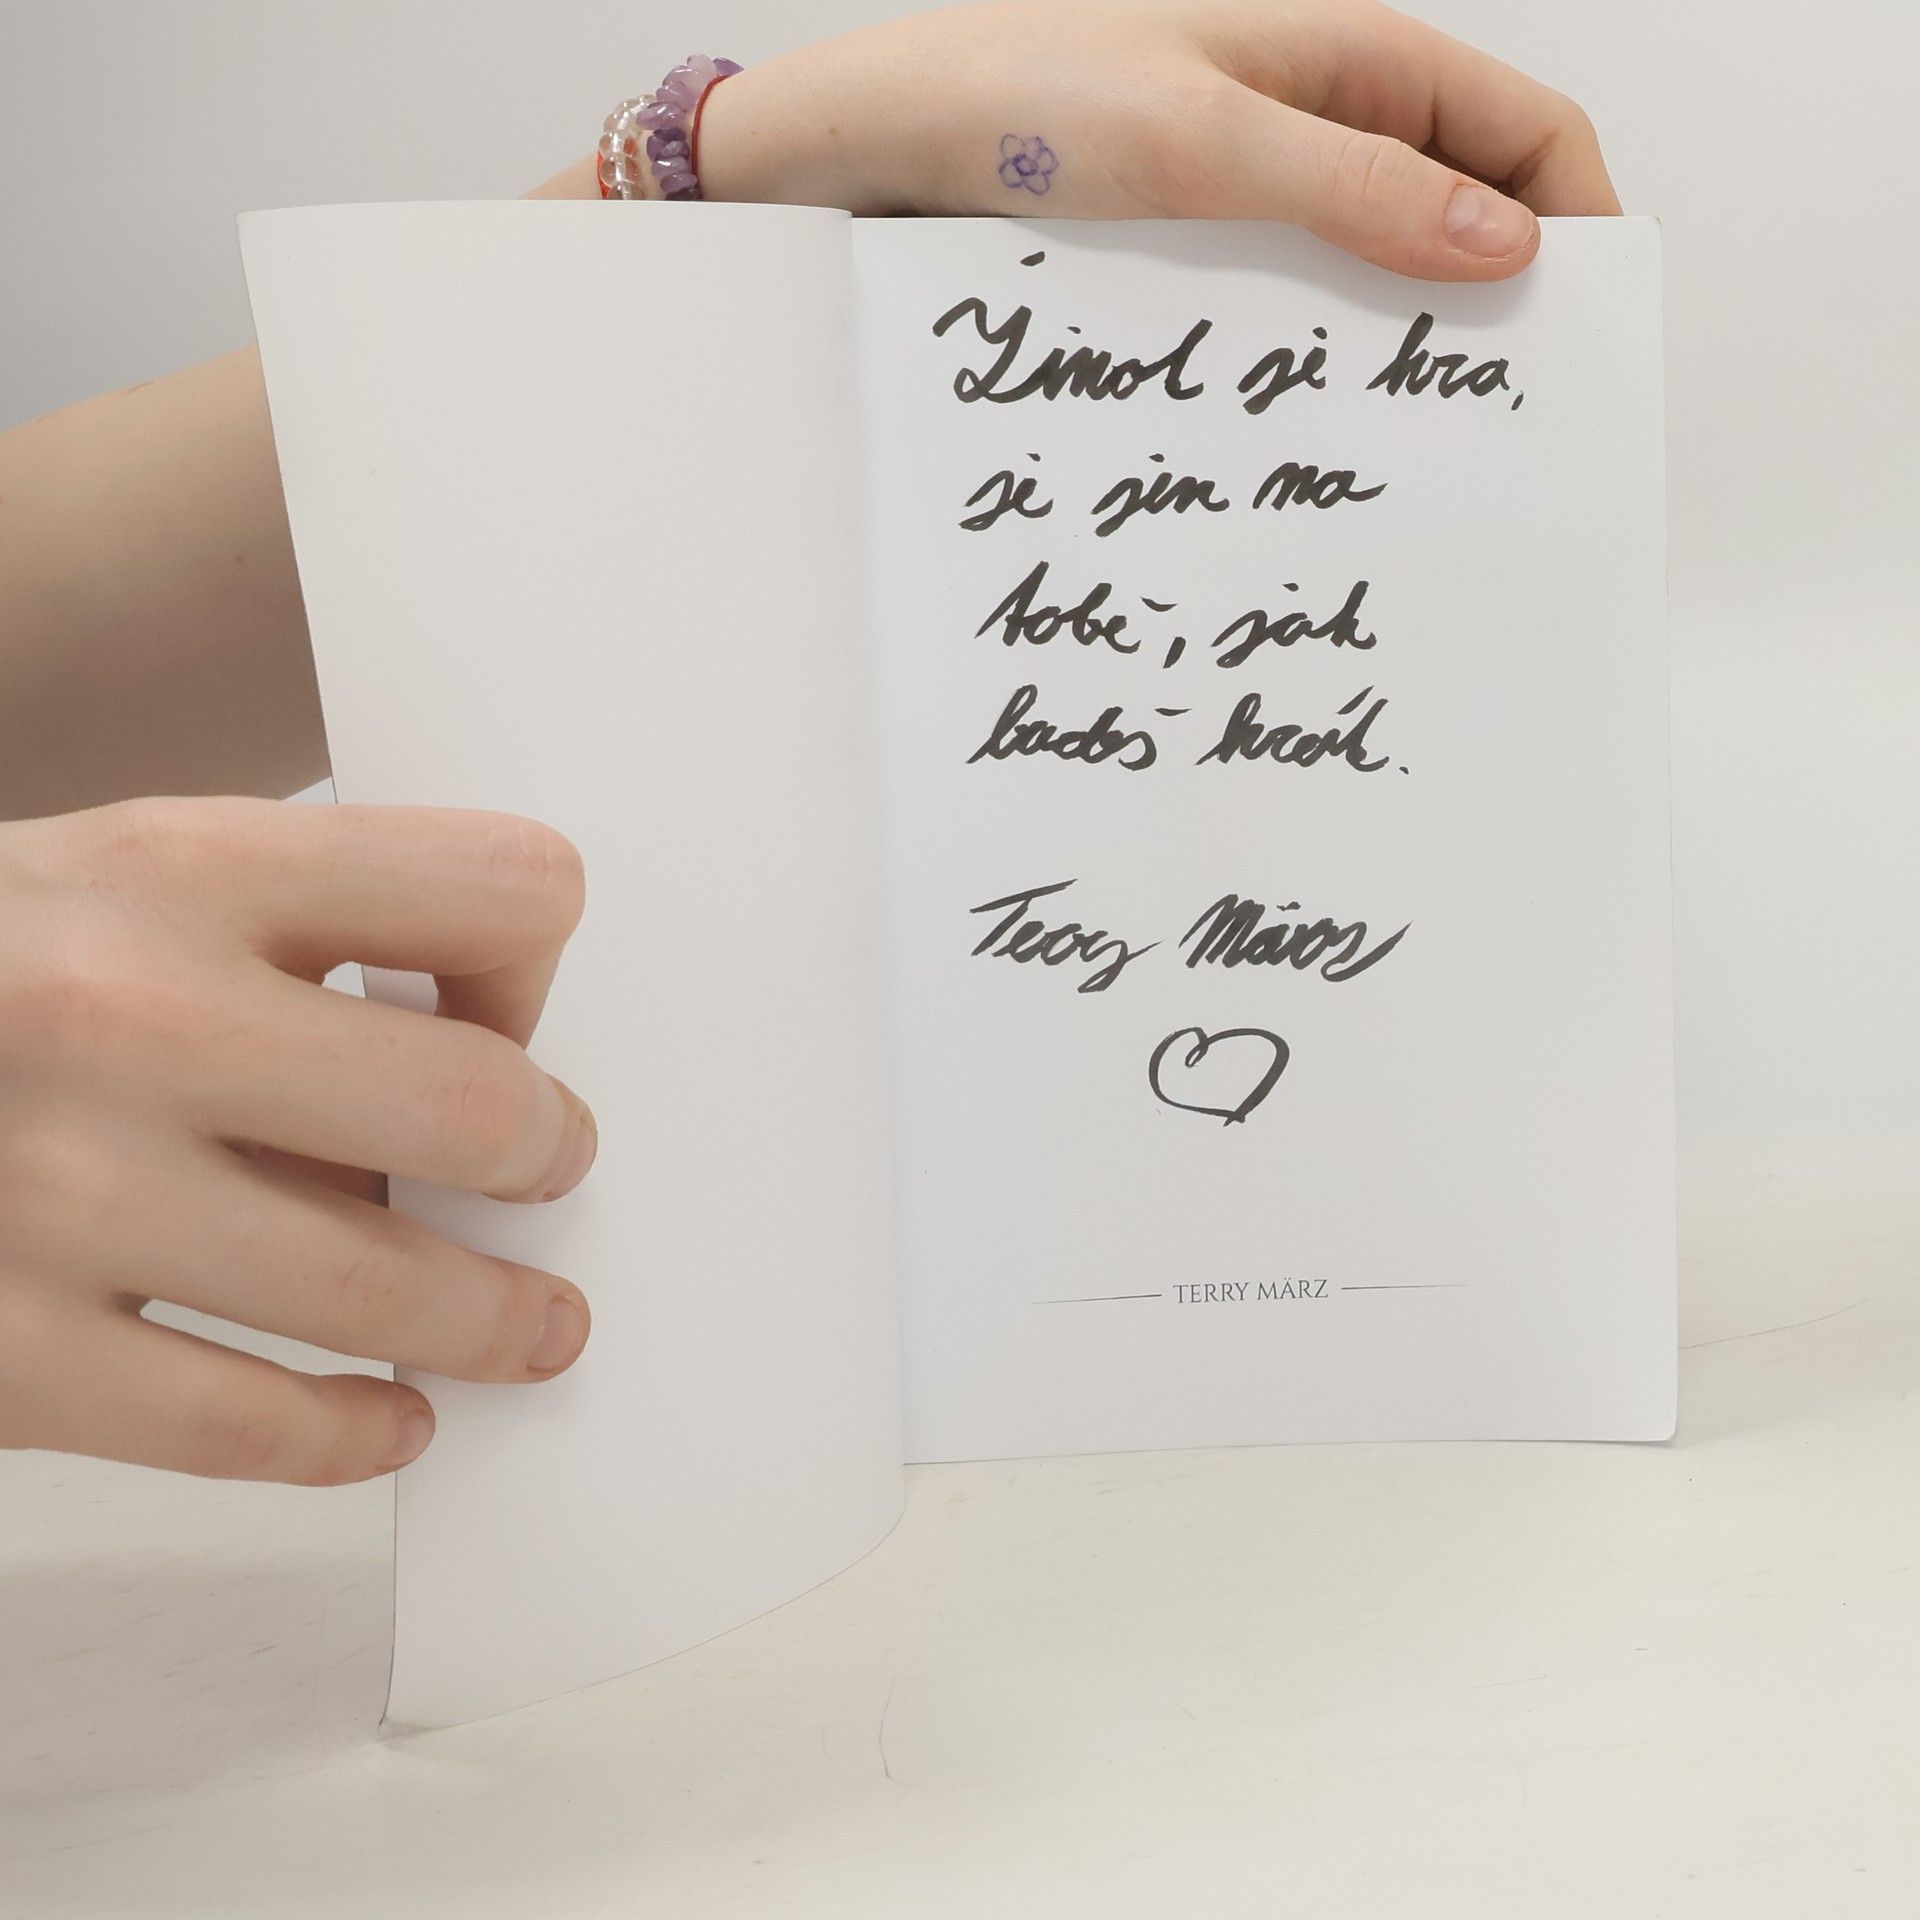 Život je hra,
je jen na
tobě, jak
budeš hrát.
Terry März
TERRY MÄRZ